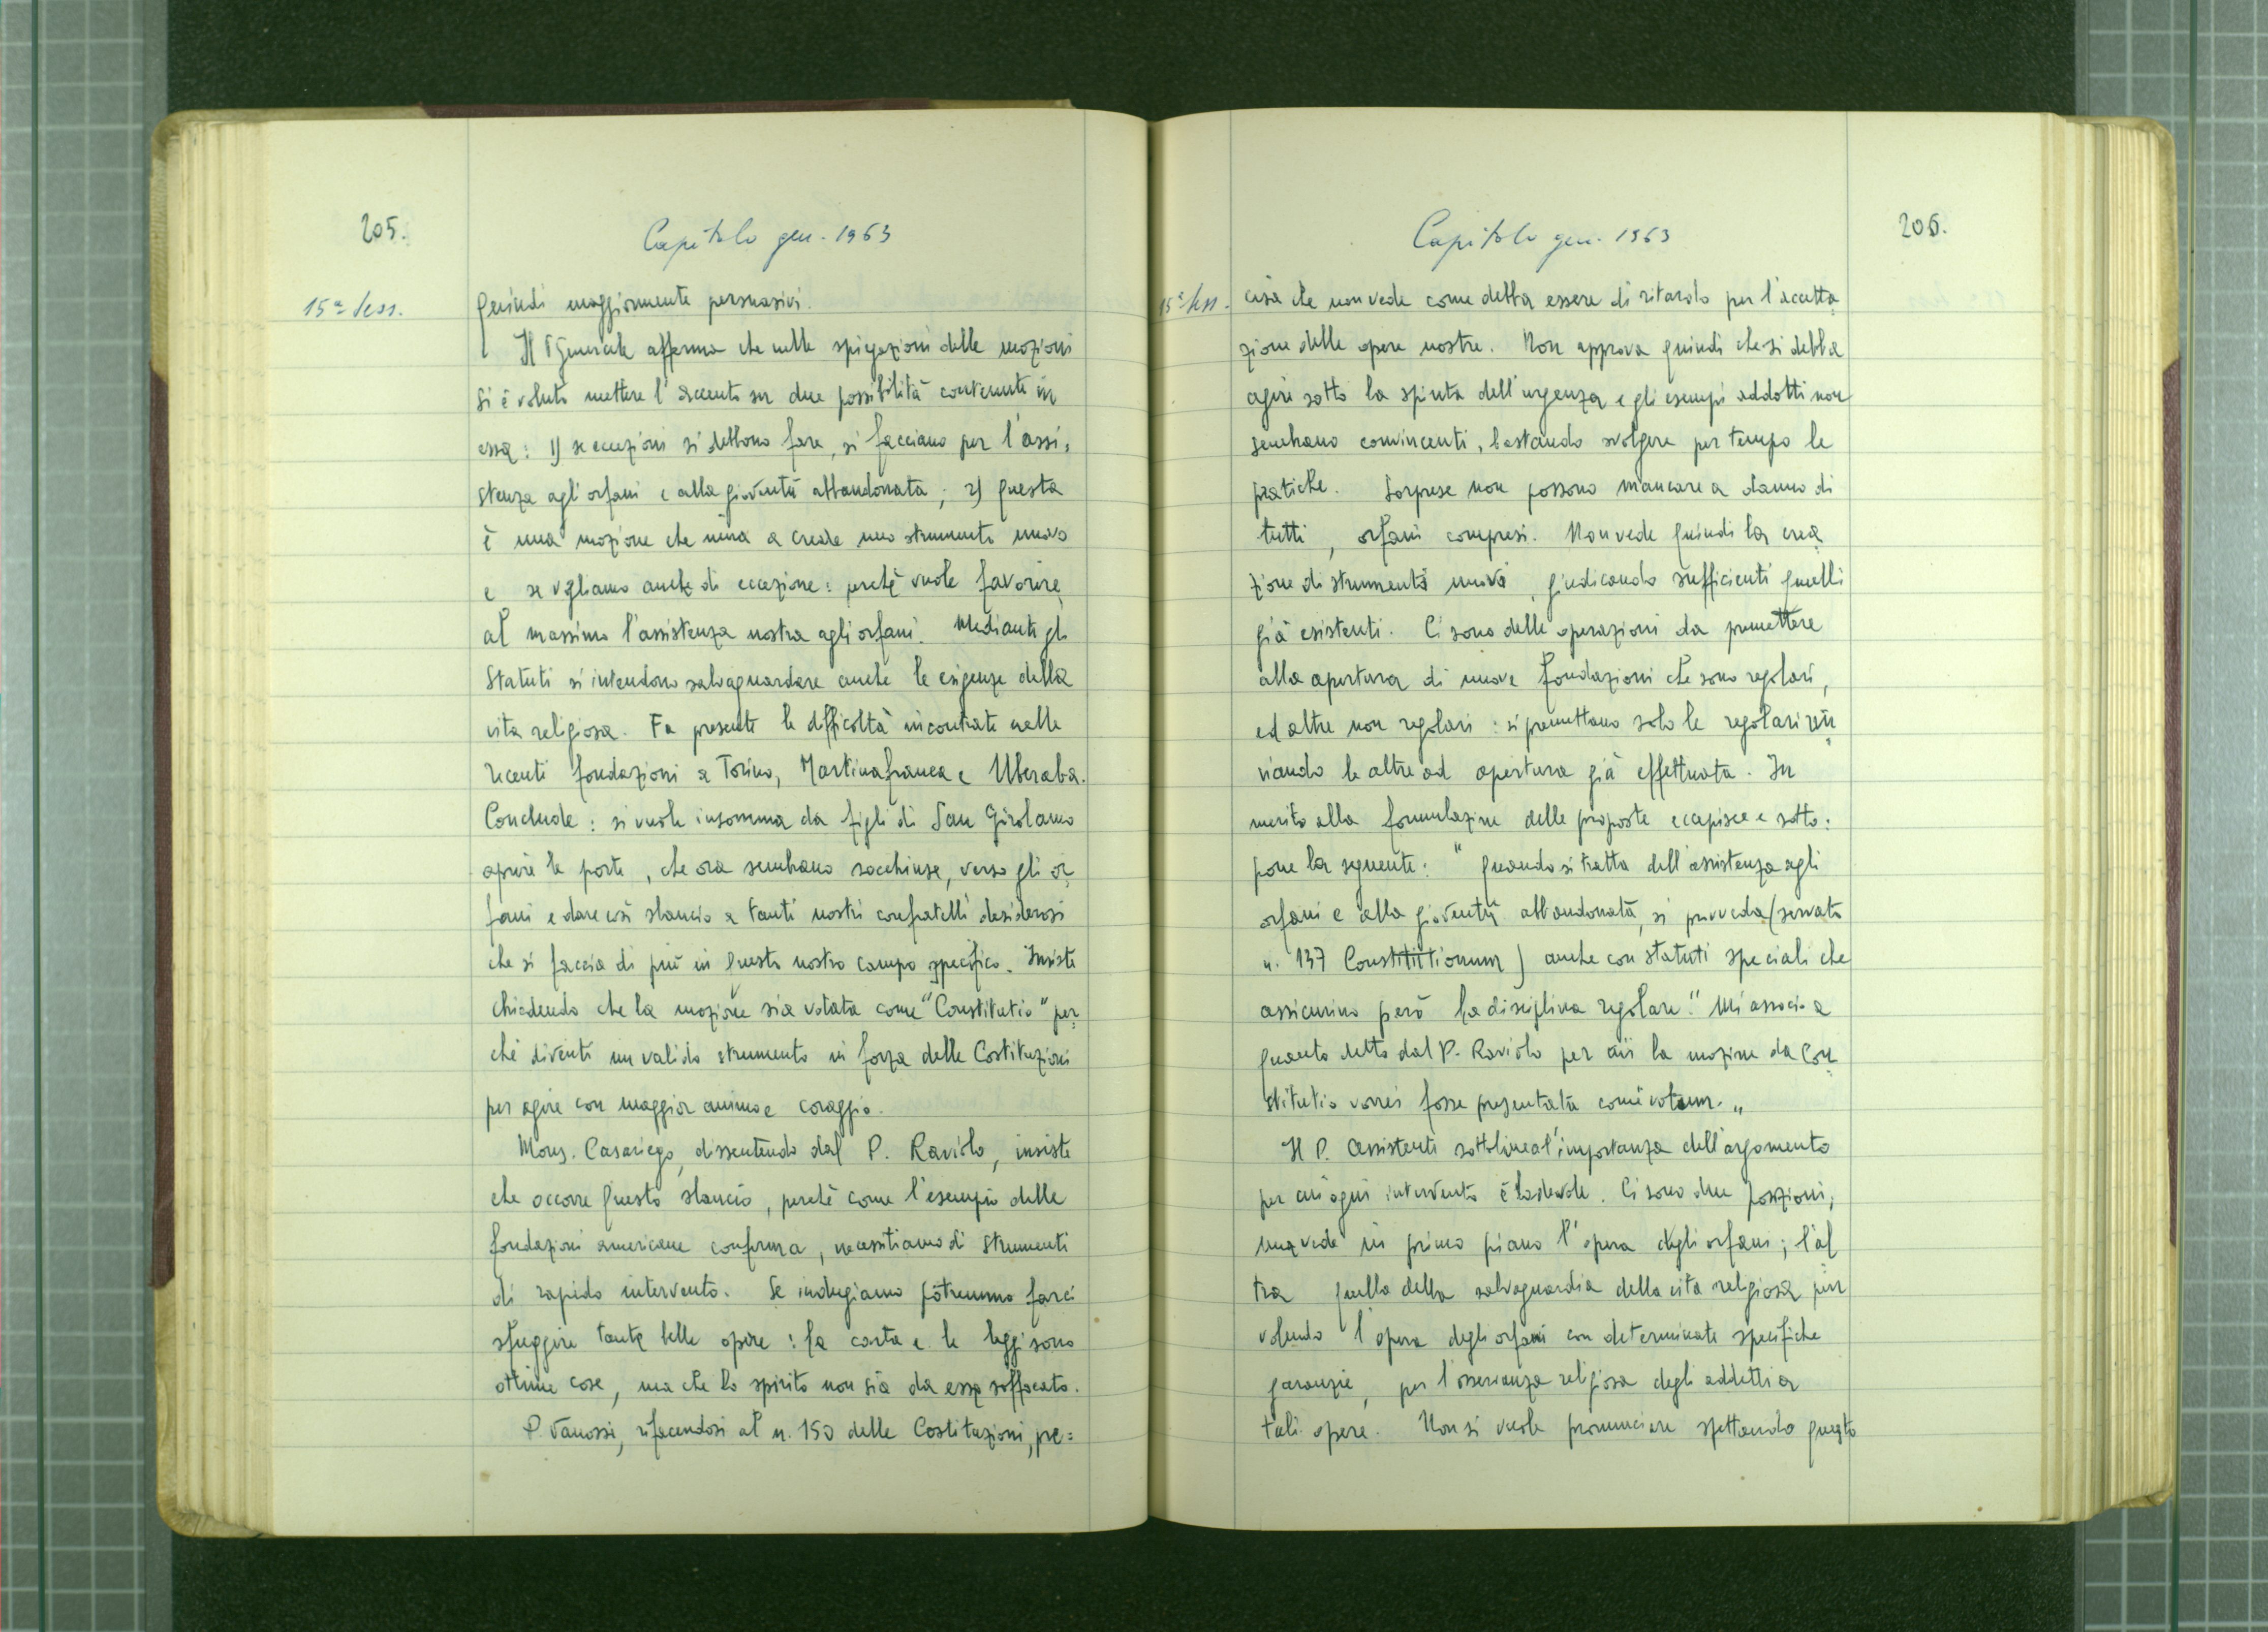 205.
Capitolo gen. 1963
15ª Sess.
quindi maggiormente persuasivi.
Il P Generale afferma che nelle spiegazioni delle mozioni
si è voluto mettere l'accento su due possibilità contenute in
essa: 1) se eccezioni si debbono fare, si facciano per l'assi=
stenza agli orfani e alla gioventù abbandonata; 2) questa
è una mozione che mira a creare uno strumento nuovo
e se vogliamo anche di eccezione: perchè vuole favorire
al massimo l'assistenza nostra agli orfani. Mediante gli
Statuti si intendono salvaguardare anche le esigenze della
vita religiosa. Fa presente le difficoltà incontrate nelle
recenti fondazioni a Torino, Martinafranca e Uberaba.
Conclude: si vuole insomma da figli di San Girolamo
aprire le porte, che ora sembrano socchiuse, verso gli or
fani e dare così slancio a tanti nostri confratelli desiderosi
che si faccia di più in questo nostro campo specifico. Insiste
chiedendo che la mozione sia votata come "Constitutio" per
chè diventi un valido strumento in forza delle Costituzioni
per agire con maggior animo e coraggio.
Mons. Casariego, dissentendo dal P. Raviolo, insiste
che occorre questo slancio, perchè come l'esempio delle
fondazioni americane conferma, necessitiamo di strumenti
di rapido intervento. Se indugiamo potremmo farci
sfuggire tante belle opere: la carta e le leggi sono
ottime cose, ma che lo spirito non sia da esse soffocato.
P. Vanossi, rifacendosi al n. 150 delle Costituzioni, pre=
Capitolo gen. 1963
206.
15ª Sess.
cisa che non vede come debba essere di ritardo per l'accetta
zione delle opere nostre. Non approva quindi che si debba
agire sotto la spinta dell'urgenza e gli esempi addotti non
sembrano convincenti, bastando svolgere per tempo le
pratiche. Sorprese non possono mancare a danno di
tutti, orfani compresi. Non vede quindi la crea
zione di strumenti nuovi, giudicando sufficienti quelli
già esistenti. Ci sono delle operazioni da premettere
alla apertura di nuove fondazioni che sono regolari,
ed altre non regolari: si premettano solo le regolari rin
viando le altre ad apertura già effettuata. In
merito alla formulazione delle proposte eccepisce e sotto=
pone la seguente: "quando si tratta dell'assistenza agli
orfani e alla gioventù abbandonata, si provveda (servato
n. 137 Constitutionum) anche con statuti speciali che
assicurino però la disciplina regolare." Mi associo a
quanto detto dal P. Raviolo per cui la mozione da Con
stitutio vorrei fosse presentata come votum."
Il P. Assistente sottolinea l'importanza dell'argomento
per cui ogni intervento è lodevole. Ci sono due posizioni;
una vede in primo piano l'opera degli orfani; l'al
tra quella della salvaguardia della vita religiosa pur
volendo l'opera degli orfani con determinate specifiche
garanzie, per l'osservanza religiosa degli addetti a
tali opere. Non si vuole pronunciare spettando questo